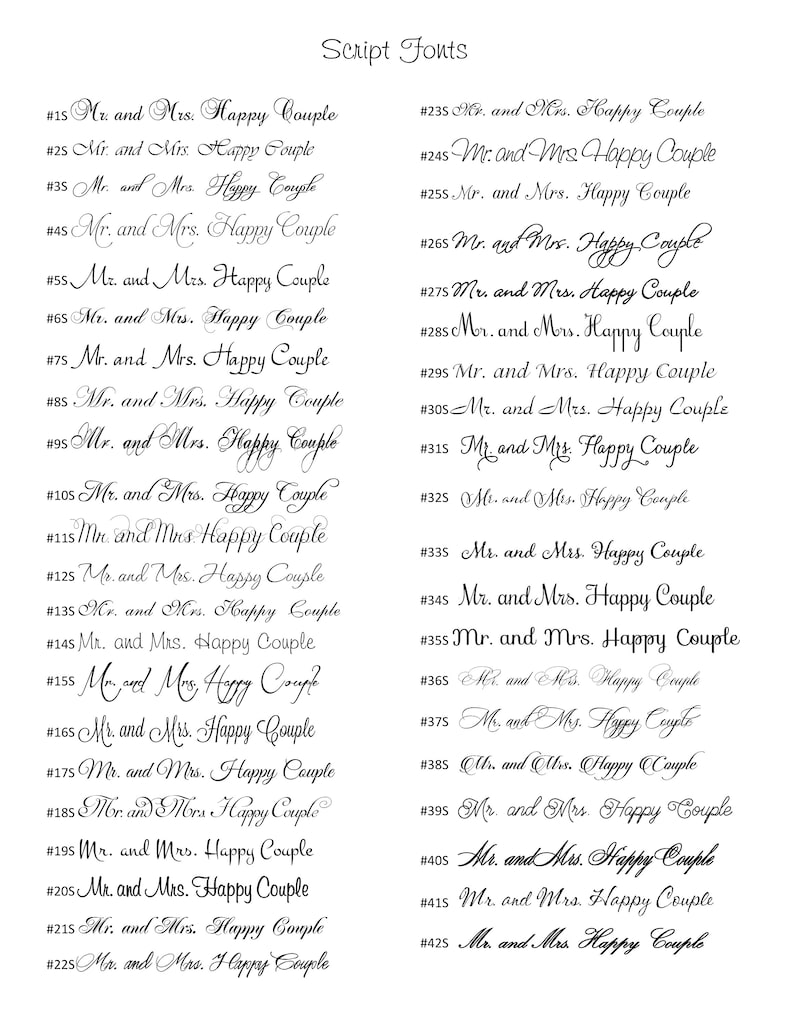 Script Fonts
#1S Mr. and Mrs. Happy Couple
#2S Mr. and Mrs. Happy Couple
#3S Mr. and Mrs. Happy Couple
#4S Mr. and Mrs. Happy Couple
#5S Mr. and Mrs. Happy Couple
#6S Mr. and Mrs. Happy Couple
#7S Mr. and Mrs. Happy Couple
#8S Mr. and Mrs. Happy Couple
#9S Mr. and Mrs. Happy Couple
#10S Mr. and Mrs. Happy Couple
#11S Mr. and Mrs Happy Couple
#12S Mr. and Mrs. Happy Couple
#13S Mr. and Mrs. Happy Couple
#14S Mr. and Mrs. Happy Couple
#15S Mr. and Mrs. Happy Couple
#16S Mr. and Mrs. Happy Couple
#17S Mr. and Mrs. Happy Couple
#18S Mr. and Mrs Happy Couple
#19S Mr. and Mrs. Happy Couple
#20S Mr. and Mrs. Happy Couple
#21S Mr. and Mrs. Happy Couple
#22S Mr. and Mrs. Happy Couple
#23S Mr. and Mrs. Happy Couple
#24S Mr. and Mrs Happy Couple
#25S Mr. and Mrs. Happy Couple
#26S Mr. and Mrs. Happy Couple
#27S Mr. and Mrs. Happy Couple
#28S Mr. and Mrs. Happy Couple
#29S Mr. and Mrs. Happy Couple
#30S Mr. and Mrs. Happy Couple
#31S Mr. and Mrs. Happy Couple
#32S Mr. and Mrs. Happy Couple
#33S Mr. and Mrs. Happy Couple
#34S Mr. and Mrs. Happy Couple
#35S Mr. and Mrs. Happy Couple
#36S Mr. and Mrs. Happy Couple
#37S Mr. and Mrs. Happy Couple
#38S Mr. and Mrs. Happy Couple
#39S Mr. and Mrs. Happy Couple
#40S Mr. and Mrs. Happy Couple
#41S Mr. and Mrs. Happy Couple
#42S Mr. and Mrs. Happy Couple